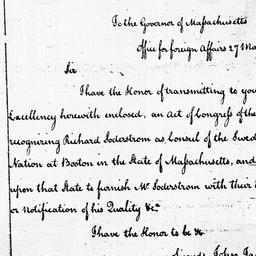 To the Governor of Massachusetts
Office for foreign Affairs 27 Ma
Sir
I have the Honor of transmitting to you
Excellency herewith enclosed, an Act of Congress of the
recognizing Richard Soderstrom as Consul of the Swed
Nation at Boston in the State of Massachusetts, and
upon that State to furnish Mr Soderstrom with their
or Notification of his Quality &c.
I have the Honor to be &c
Signed John Ja